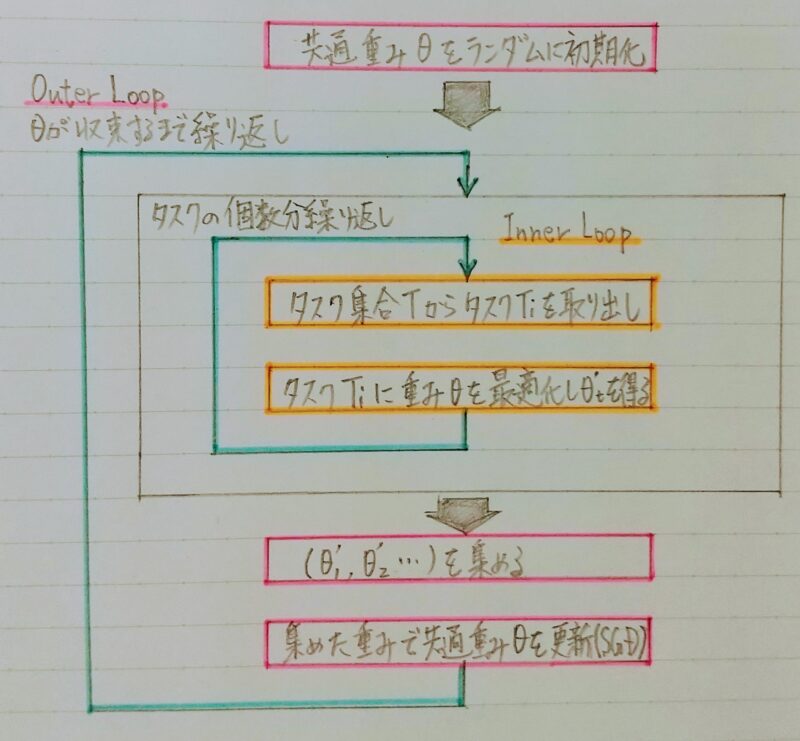 共通重みθをランダムに初期化
Outer Loop
θが収束するまで繰り返し
タスクの個数分繰り返し
Inner Loop
タスク集合TからタスクTiを取り出し
タスクTiに重みθを最適化しθ'tを得る
(θ'1, θ'2 …)を集める
集めた重みで共通重みθを更新(SGD)